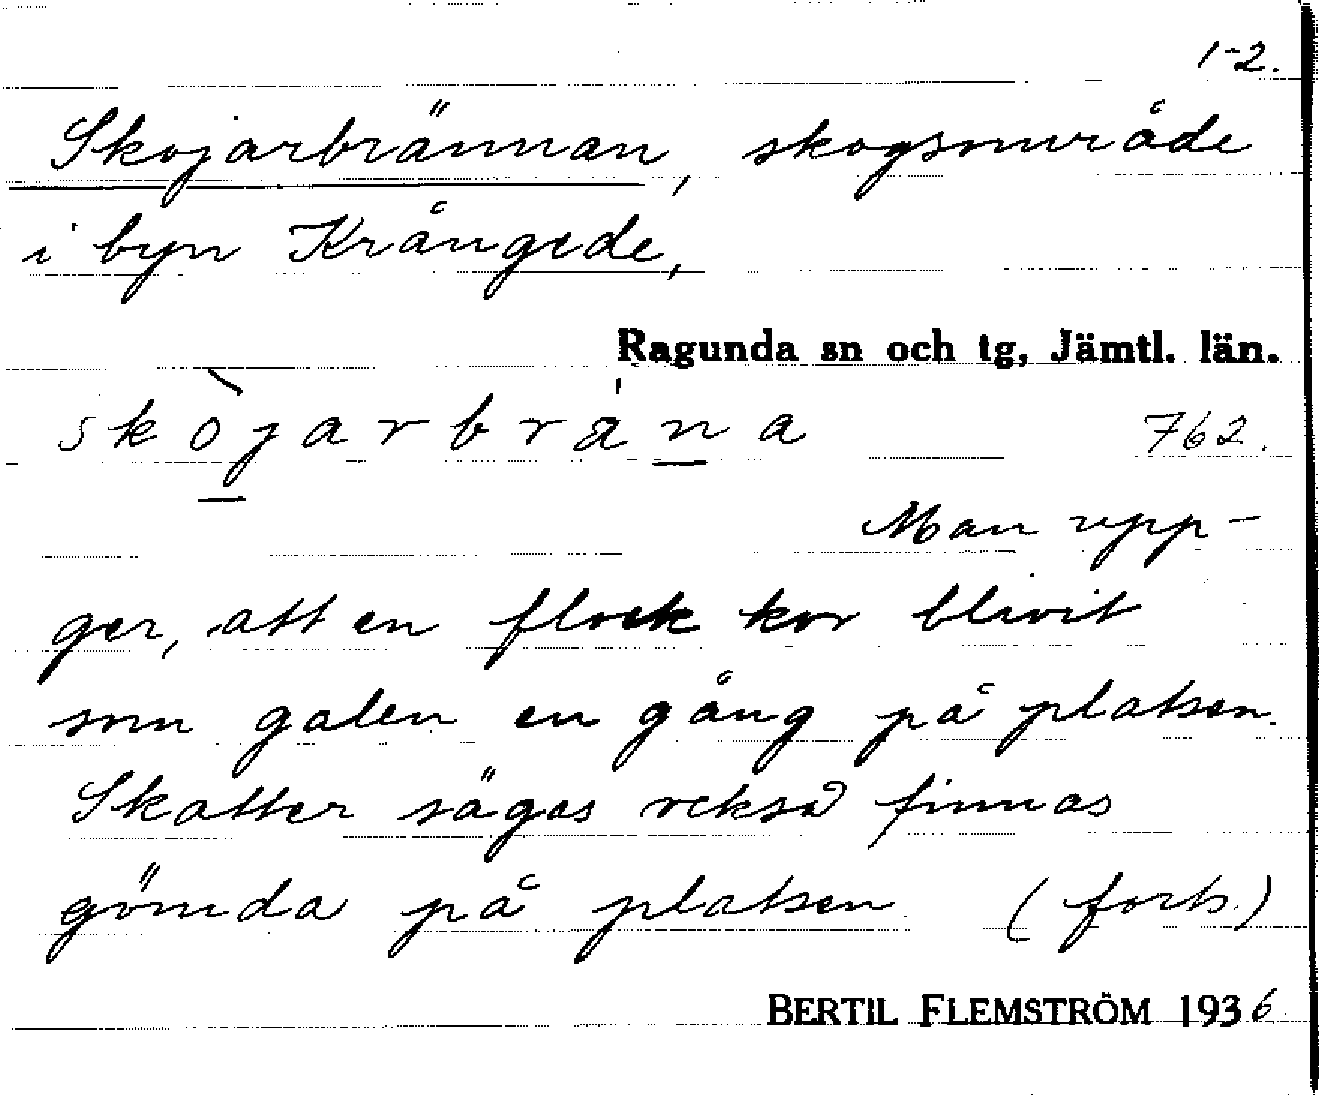 1-2.
Skojarbrännan, skogsområde
i byn Krångede,
Ragunda sn och tg, Jämtl. län.
skòjarbrána 762.
Man upp-
ger, att en flock kor blivit
som galen en gång på platsen.
Skatter säges också finnas
gömda på platsen (forts.)
BERTIL FLEMSTRÖM 1936